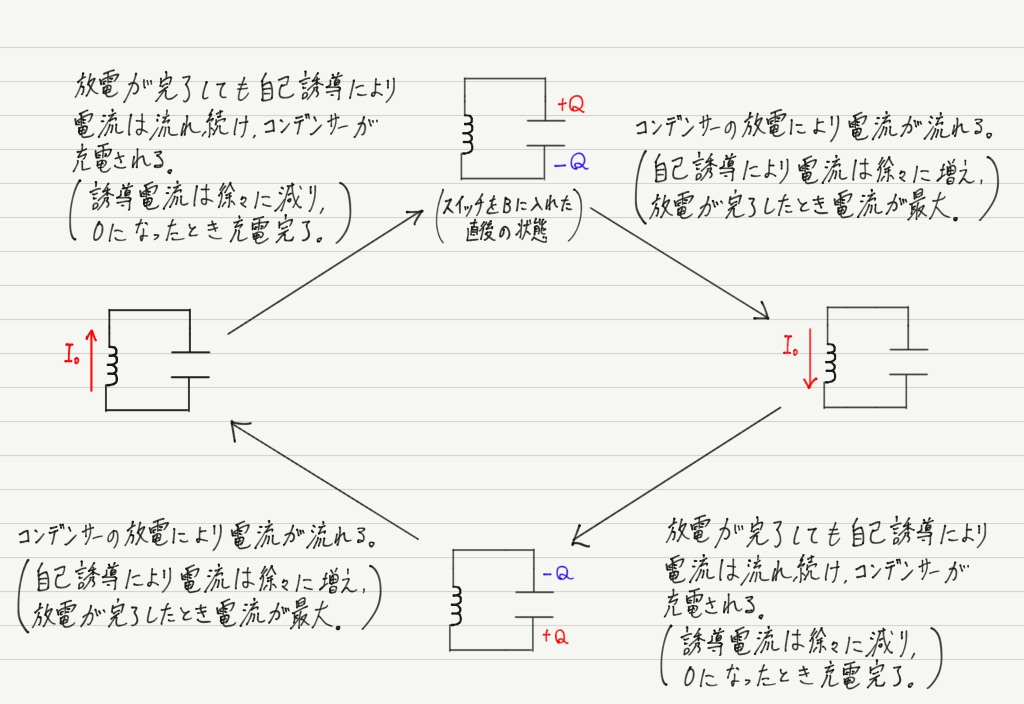 放電が完了しても自己誘導により
電流は流れ続け,コンデンサーが
充電される。
(誘導電流は徐々に減り,
0になったとき充電完了。)
+Q
-Q
(スイッチをBに入れた
直後の状態)
コンデンサーの放電により電流が流れる。
(自己誘導により電流は徐々に増え,
放電が完了したとき電流が最大。)
I₀
I₀
コンデンサーの放電により電流が流れる。
(自己誘導により電流は徐々に増え,
放電が完了したとき電流が最大。)
-Q
+Q
放電が完了しても自己誘導により
電流は流れ続け,コンデンサーが
充電される。
(誘導電流は徐々に減り,
0になったとき充電完了。)